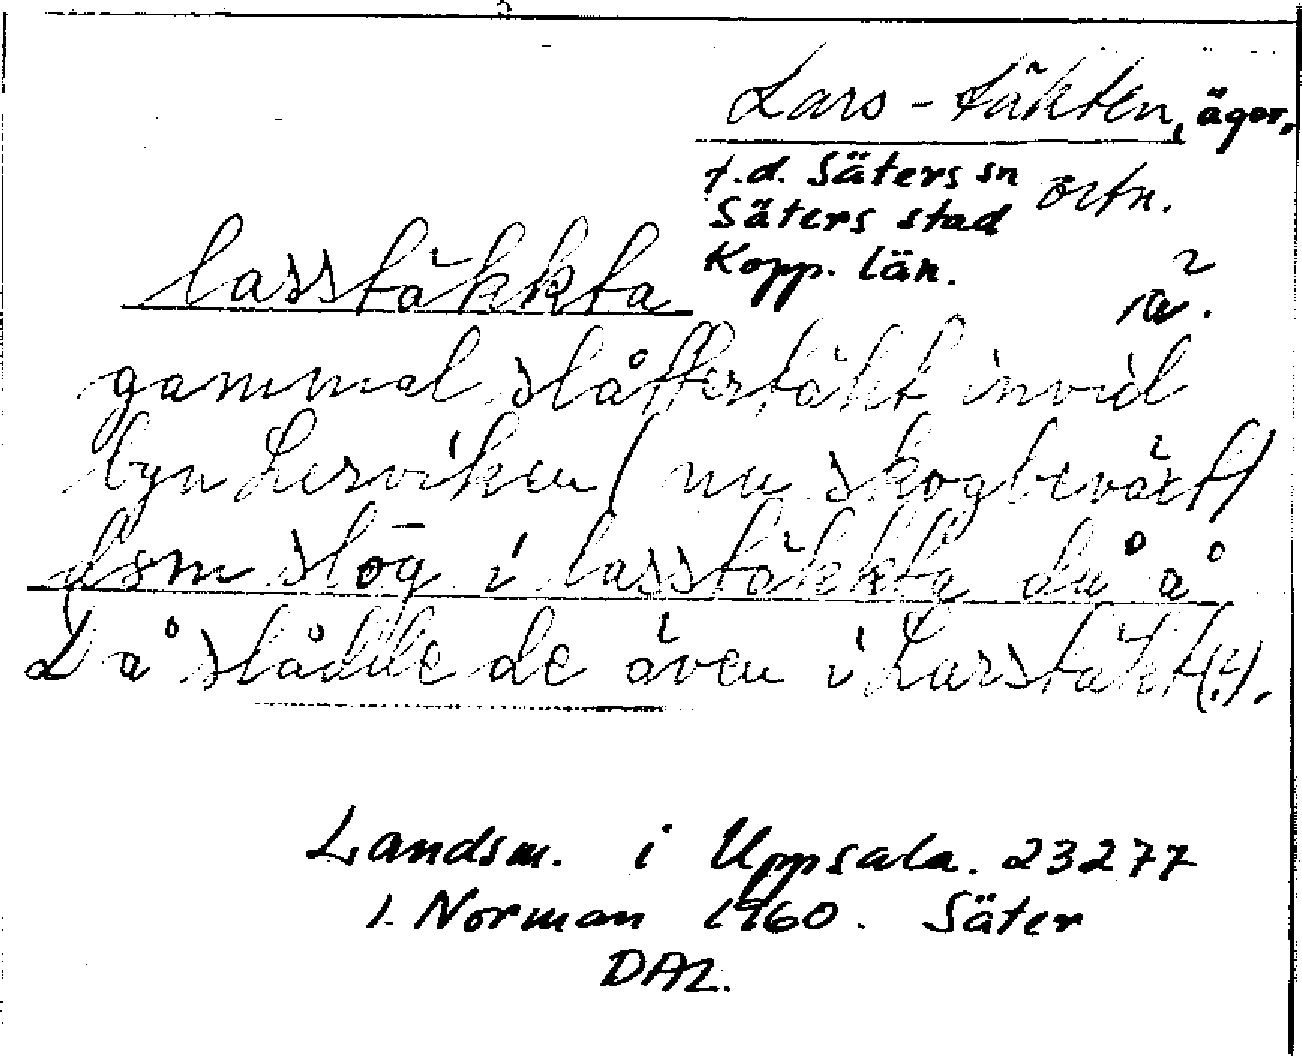 Lars-täkten, ägor,
f.d. Säters sn ortn.
Säters stad
Kopp. län.
lasstäkkta
gammal slåttertäkt invid
byn Lerviken (nu skogbeväxt)
dsm slōg i lasstäkkta då å
Då slådde de även i Larstäkt(.).
Landsm. i Uppsala. 23277
I. Norman 1960. Säter
DAL.